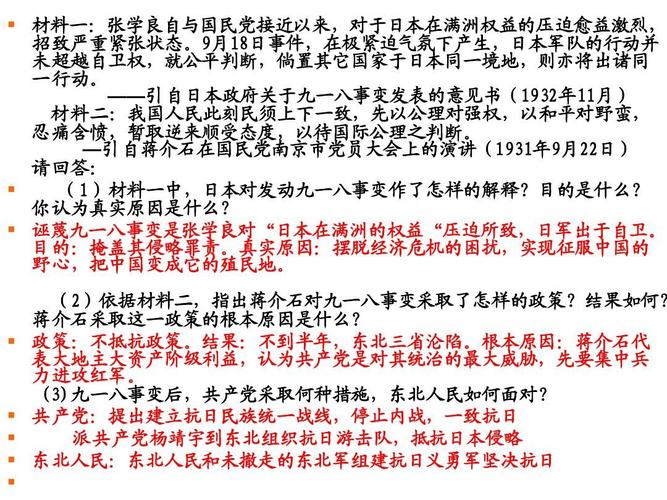 材料一：张学良自与国民党接近以来，对于日本在满洲权益的压迫愈益激烈，
招致严重紧张状态。9月18日事件，在极紧迫气氛下产生，日本军队的行动并
未超越自卫权，就公平判断，倘置其它国家于日本同一境地，则亦将出诸同
一行动。
——引自日本政府关于九一八事变发表的意见书（1932年11月）
材料二：我国人民此刻民须上下一致，先以公理对强权，以和平对野蛮，
忍痛含愤，暂取逆来顺受态度，以待国际公理之判断。
—引自蒋介石在国民党南京市党员大会上的演讲（1931年9月22日）
请回答：
（1）材料一中，日本对发动九一八事变作了怎样的解释？目的是什么？
你认为真实原因是什么？
诬蔑九一八事变是张学良对“日本在满洲的权益“压迫所致，日军出于自卫。
目的：掩盖其侵略罪责。真实原因：摆脱经济危机的困扰，实现征服中国的
野心，把中国变成它的殖民地。
（2）依据材料二，指出蒋介石对九一八事变采取了怎样的政策？结果如何？
蒋介石采取这一政策的根本原因是什么？
政策：不抵抗政策。结果：不到半年，东北三省沦陷。根本原因：蒋介石代
表大地主大资产阶级利益，认为共产党是对其统治的最大威胁，先要集中兵
力进攻红军。
(3)九一八事变后，共产党采取何种措施，东北人民如何面对？
共产党：提出建立抗日民族统一战线，停止内战，一致抗日
派共产党杨靖宇到东北组织抗日游击队，抵抗日本侵略
东北人民：东北人民和未撤走的东北军组建抗日义勇军坚决抗日